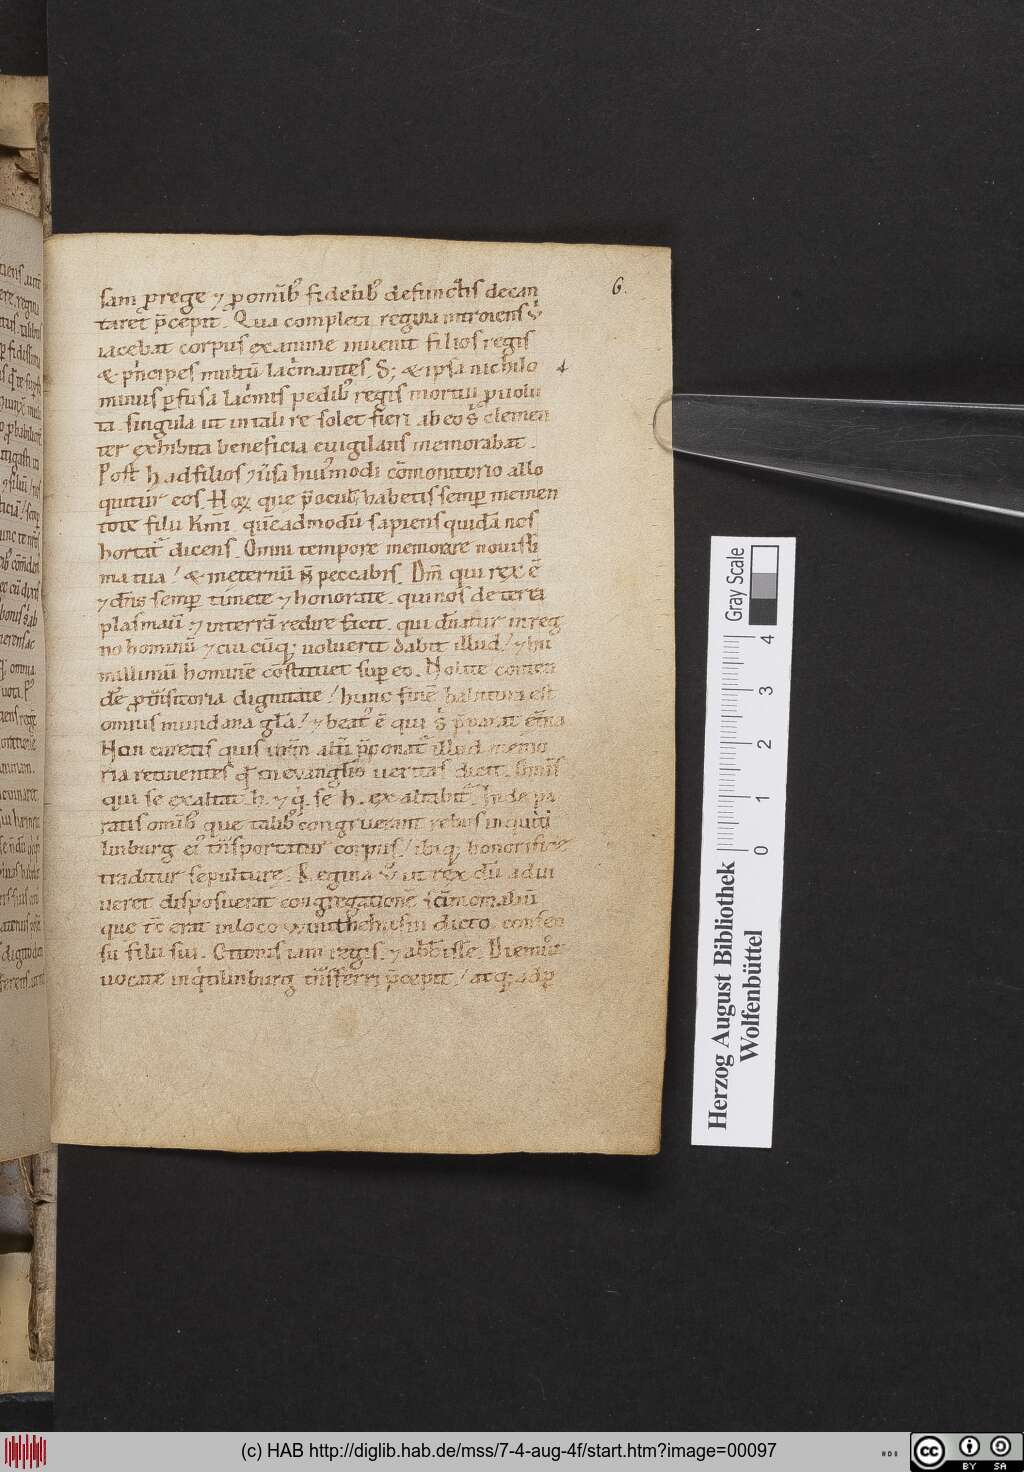 6.
sam p̲rege ⁊ p̲ omīb; fidelib; defunctis decan
taret p̄cepit. Qua completa regina introiens u͛
iacebat corpus exanime inuenit filios regis
& pͥncipes multū lacͥmantes. S; & ipsa nichilo
minus p̲fusa lacͥmis pedib; regis mortui p̲uolu
ta. singula ut in tali re solet fieri ab eo s clemen
ter exhibita beneficia euigilans memorabat.
Post h ad filios
quitur eos. que habetis semp̲ memen
tote filii kmī. quēadmodū sapiens quidā nos
hortat᷑ dicens. Omni tempore memorare nouissi
ma tua / & in eternū n̄ peccabis. Dm̄ qui rex ē
⁊ dn̄s semp̲ timete ⁊ honorate. qui nos de terra
plasmauit ⁊ in terrā redire facit. qui dn̄atur in reg
no hominū ⁊ cui cūq; uoluerit dabit illud / ⁊ hu
millimū hominē cōstituet sup̲ eo. Nolite conten
de p̲ dignitate / hunc finē habitura est
omnis mundana gl̄a / ⁊ beat᷒ ē qui p̄parat et̄na
Non curetis quis illud memo
ria retinentes qd in euangelio ueritas dicit. Omnis
qui se exaltat h. ⁊ qͥ se h. exaltabit᷑. Inde pa
ratis omīb; que talib; congruerant rebus in quiti
linburg ei᷒ trāsportatur corpus / ibiq; honorifice
traditur sepulture. Regina u͛ ut rex dū adui
ueret disposuerat congregationē scīmonialiū
que tc̄ erat in loco winithehusin dicto consen
su filii sui. Ottonis iam regis. ⁊ abb̄isse. Diemŏt
uocate in qͥtilinburg trāsferri p̄cepit / atq; ad p̲
Gray Scale
0 1 2 3 4
Herzog August Bibliothek
Wolfenbüttel
(c) HAB http://diglib.hab.de/mss/7-4-aug-4f/start.htm?image=00097
cc BY SA